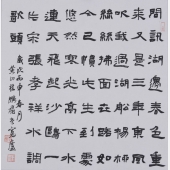 問訊湖邊春色重
來又是三年東風
吹我過湖船楊柳
絲絲拂面世路如
今已慣此心到處
悠然寒光亭下水
如天飛起沙鷗一
片宋張孝祥水調
歌頭
歲次丙申春月